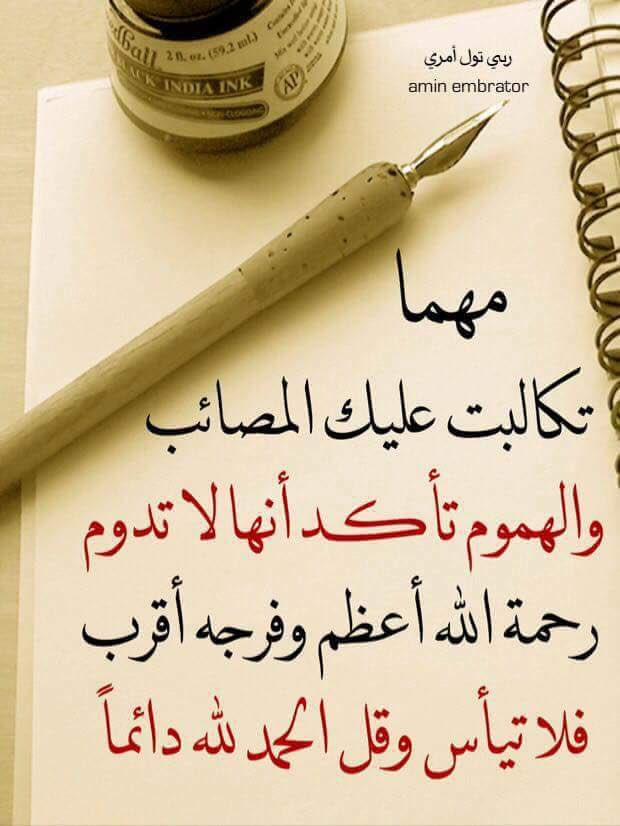 2 fl. oz. (59.2 ml.)
BLACK INDIA INK
AP
ربي تول أمري
amin embrator
مهما
تكالبت عليك المصائب
والهموم تأكد أنها لا تدوم
رحمة الله أعظم وفرجه أقرب
فلا تيأس وقل الحمد لله دائماً